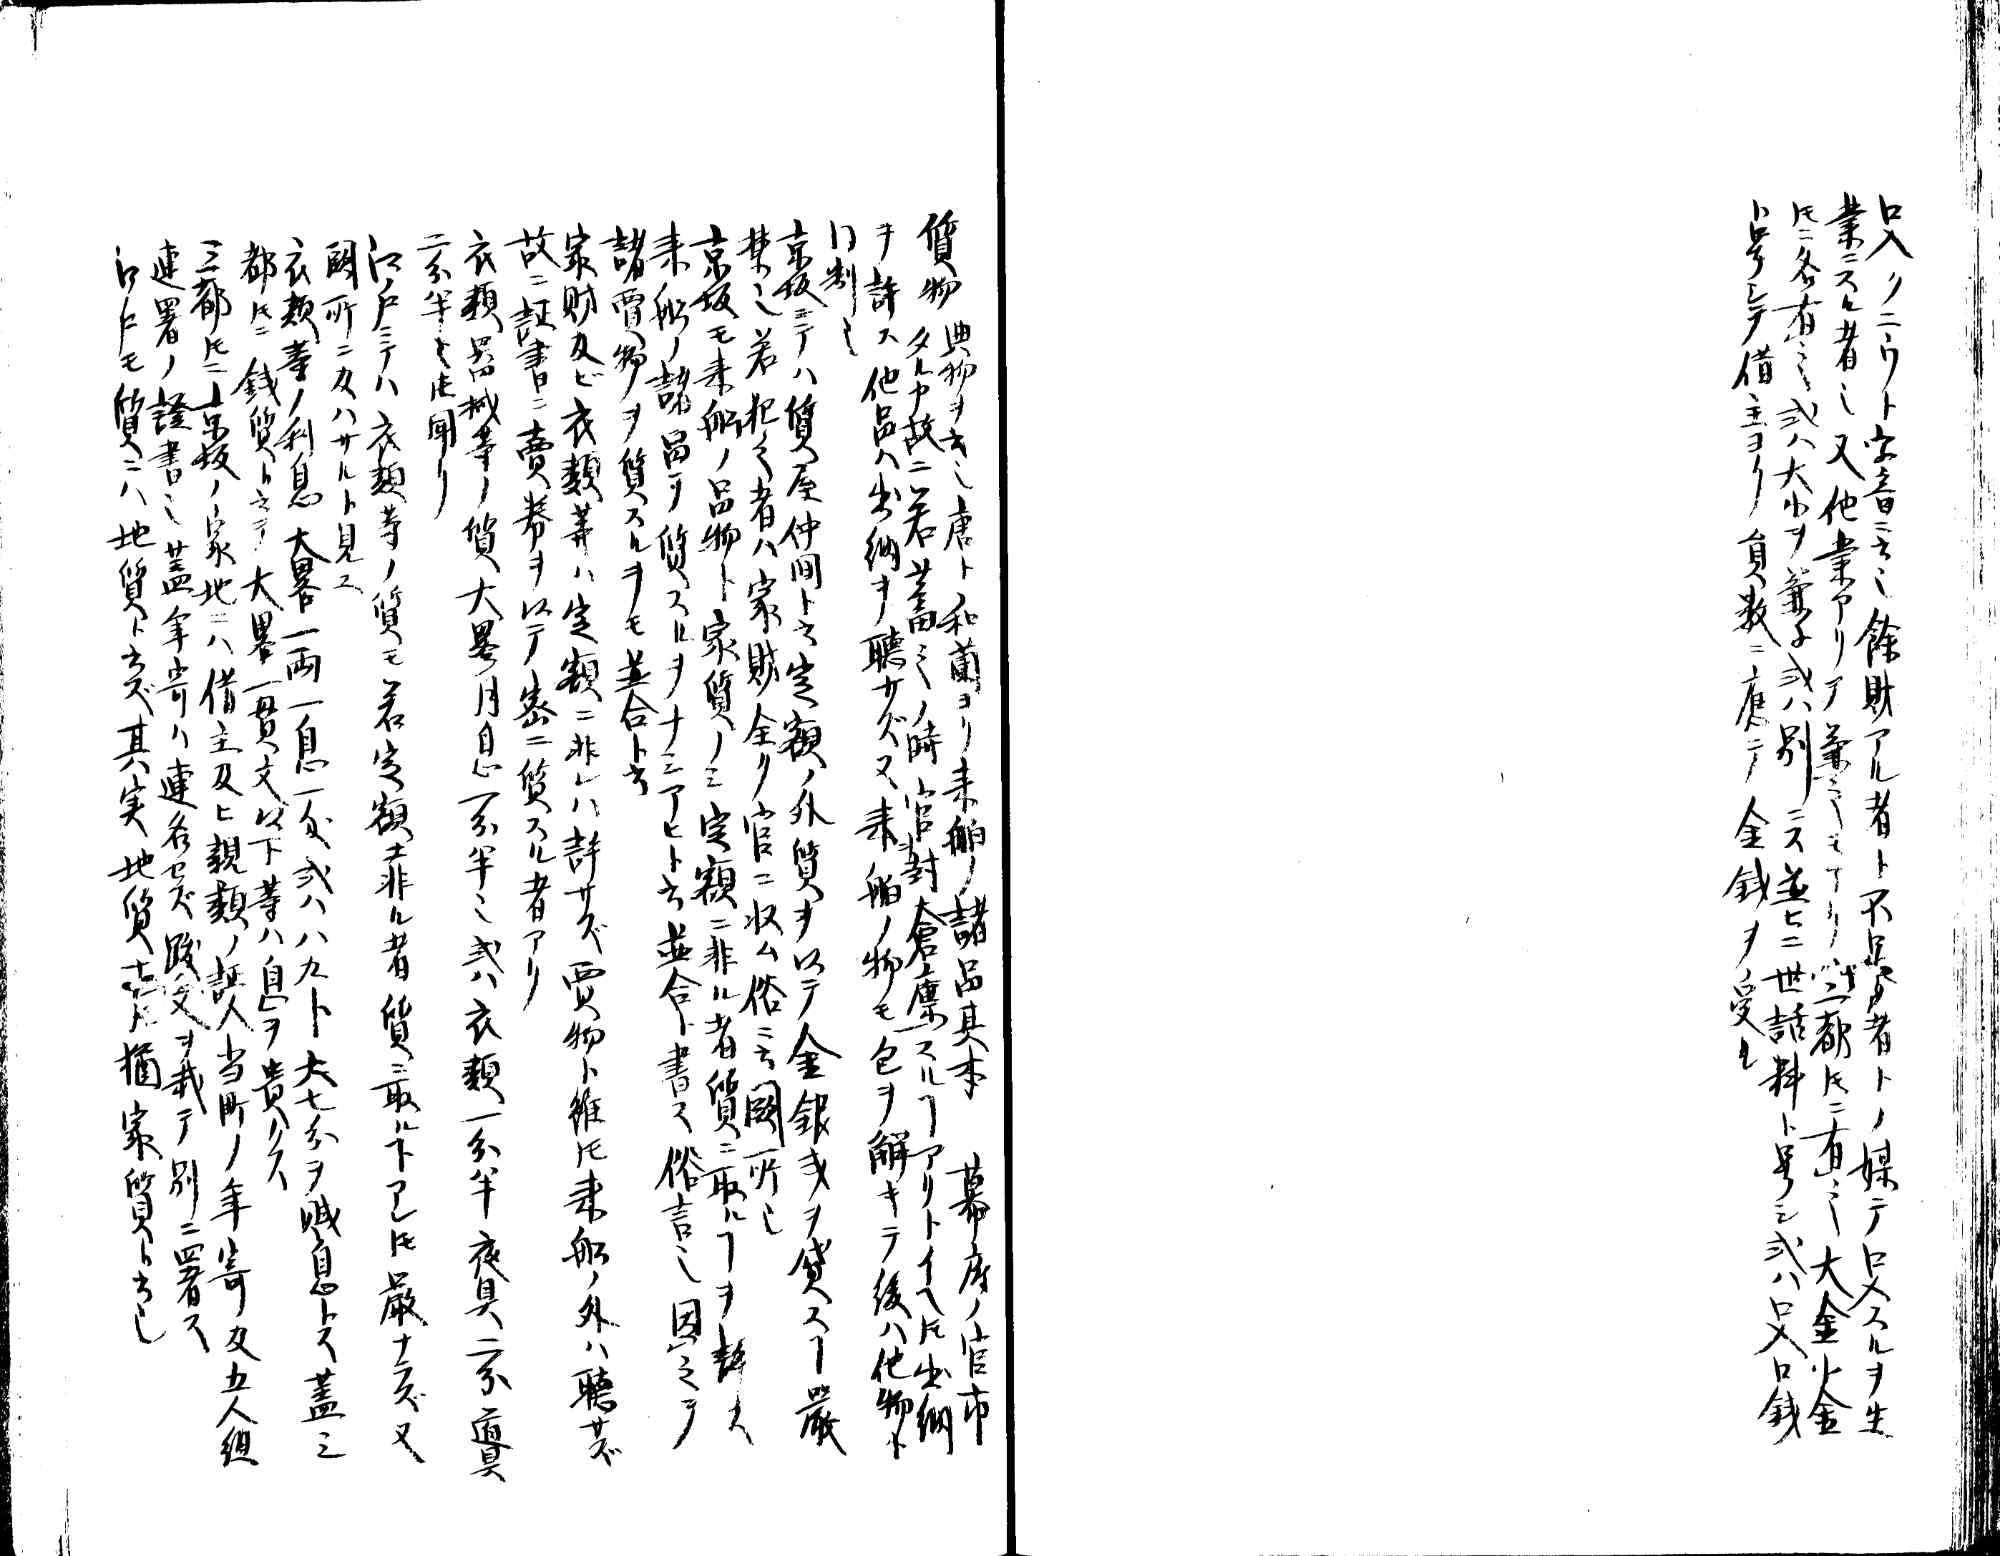 口入 クニウト字音ニ云也 餘財アル者ト不足ノ者トノ媒テ口入スルヲ生
業ニスル者也 又他業アリテ兼之モアリ 三都トモニ有之 大金小金
トモニ各有之 或ハ大小ヲ兼子或ハ別ニス 並ヒニ世話料ト号シ或ハ口入口銭
ト号シテ借主ヨリ員数ニ應テ金銭ヲ受ル
質物 典物ヲ云也 唐ト和蘭ヨリ来舶ノ諸品其本 幕府ノ官市
タルカ故ニ若蓄ミノ時官封倉廩スルヿアリトイヘトモ出納
ヲ許ス 他品ハ出納ヲ聴サズ 又来舶ノ物モ包ヲ解キテ後ハ他物ト
同制也
京坂ニテハ質屋仲間ト云定額ノ外質ヲ以テ金銀或ヲ貸スヿ嚴
禁也 若犯之者ハ家財全ク官ニ収ム俗ニ云闕所也
京坂モ来舶ノ品物ト家質ノミ定額ニ非ル者質ニ取ルヿヲ許ス
来舶ノ諸品ヲ質スルヲナミアヒト云 並合ト書ス俗言也 因之テ
諸買物ヲ質スルヲモ並合ト云
家財及ビ衣類等ハ定額ニ非レハ許サズ 買物ト雖トモ来舶ノ外ハ聴サズ
故ニ証書ニ賣券ヲ以テ密ニ質スル者アリ
衣類器械等ノ質大畧月息一分半也 或ハ衣類一分半夜具二分道具
二分半トモ聞リ
江戸ニテハ衣類等ノ質モ若定額ニ非ル者質ニ取ル下アレトモ嚴ナラズ 又
闕所ニ及ハサルト見ユ
衣類等ノ利息大畧一両一息一匁或ハ八九ト 大七分ヲ賎息トス 蓋三
都トモニ銭質ト云テ大畧一貫文以下等ハ息ヲ貴クス
三都トモニ京坂ノ家地ニハ借主及ヒ親類ノ証人当町ノ年寄及五人組
連署ノ證書也 蓋年寄ハ連名セズ跋文ヲ載テ別ニ署ス
江戸モ質ニハ地質ト云ズ其実地質ナレトモ猶家質ト云也